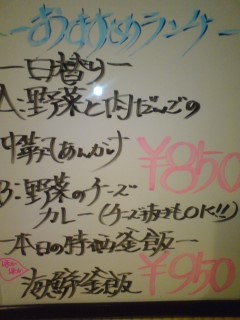 おすすめランチ
ー日替りー
A:野菜と肉だんごの
中華風あんかけ
¥850
B:野菜のチーズ
カレー(チーズ抜きもOK!!)
ー本日の特選釜飯ー
海鮮釜飯
¥950